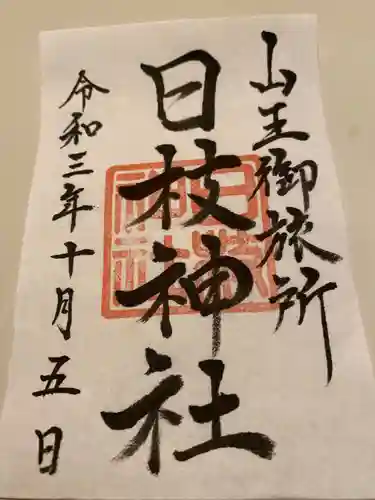 山王御旅所
日枝神社
令和三年十月五日
日枝神社